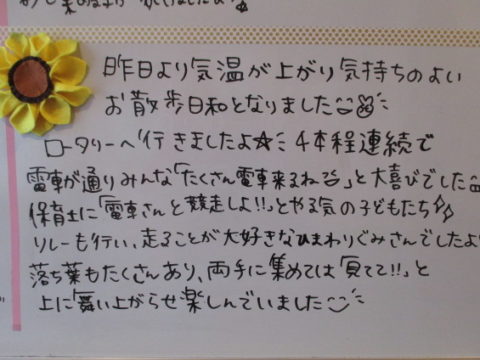 昨日より気温が上がり気持ちのよい
お散歩日和となりました
ロータリーへ行きましたよ☆ 4本程連続で
電車が通りみんな「たくさん電車来るね」と大喜びでした
保育士に「電車さんと競走しよ!!」とやる気の子どもたち
リレーも行い、走ることが大好きなひまわりぐみさんでしたよ
落ち葉もたくさんあり、両手に集めては「見てて!!」と
上に舞い上がらせ楽しんでいました